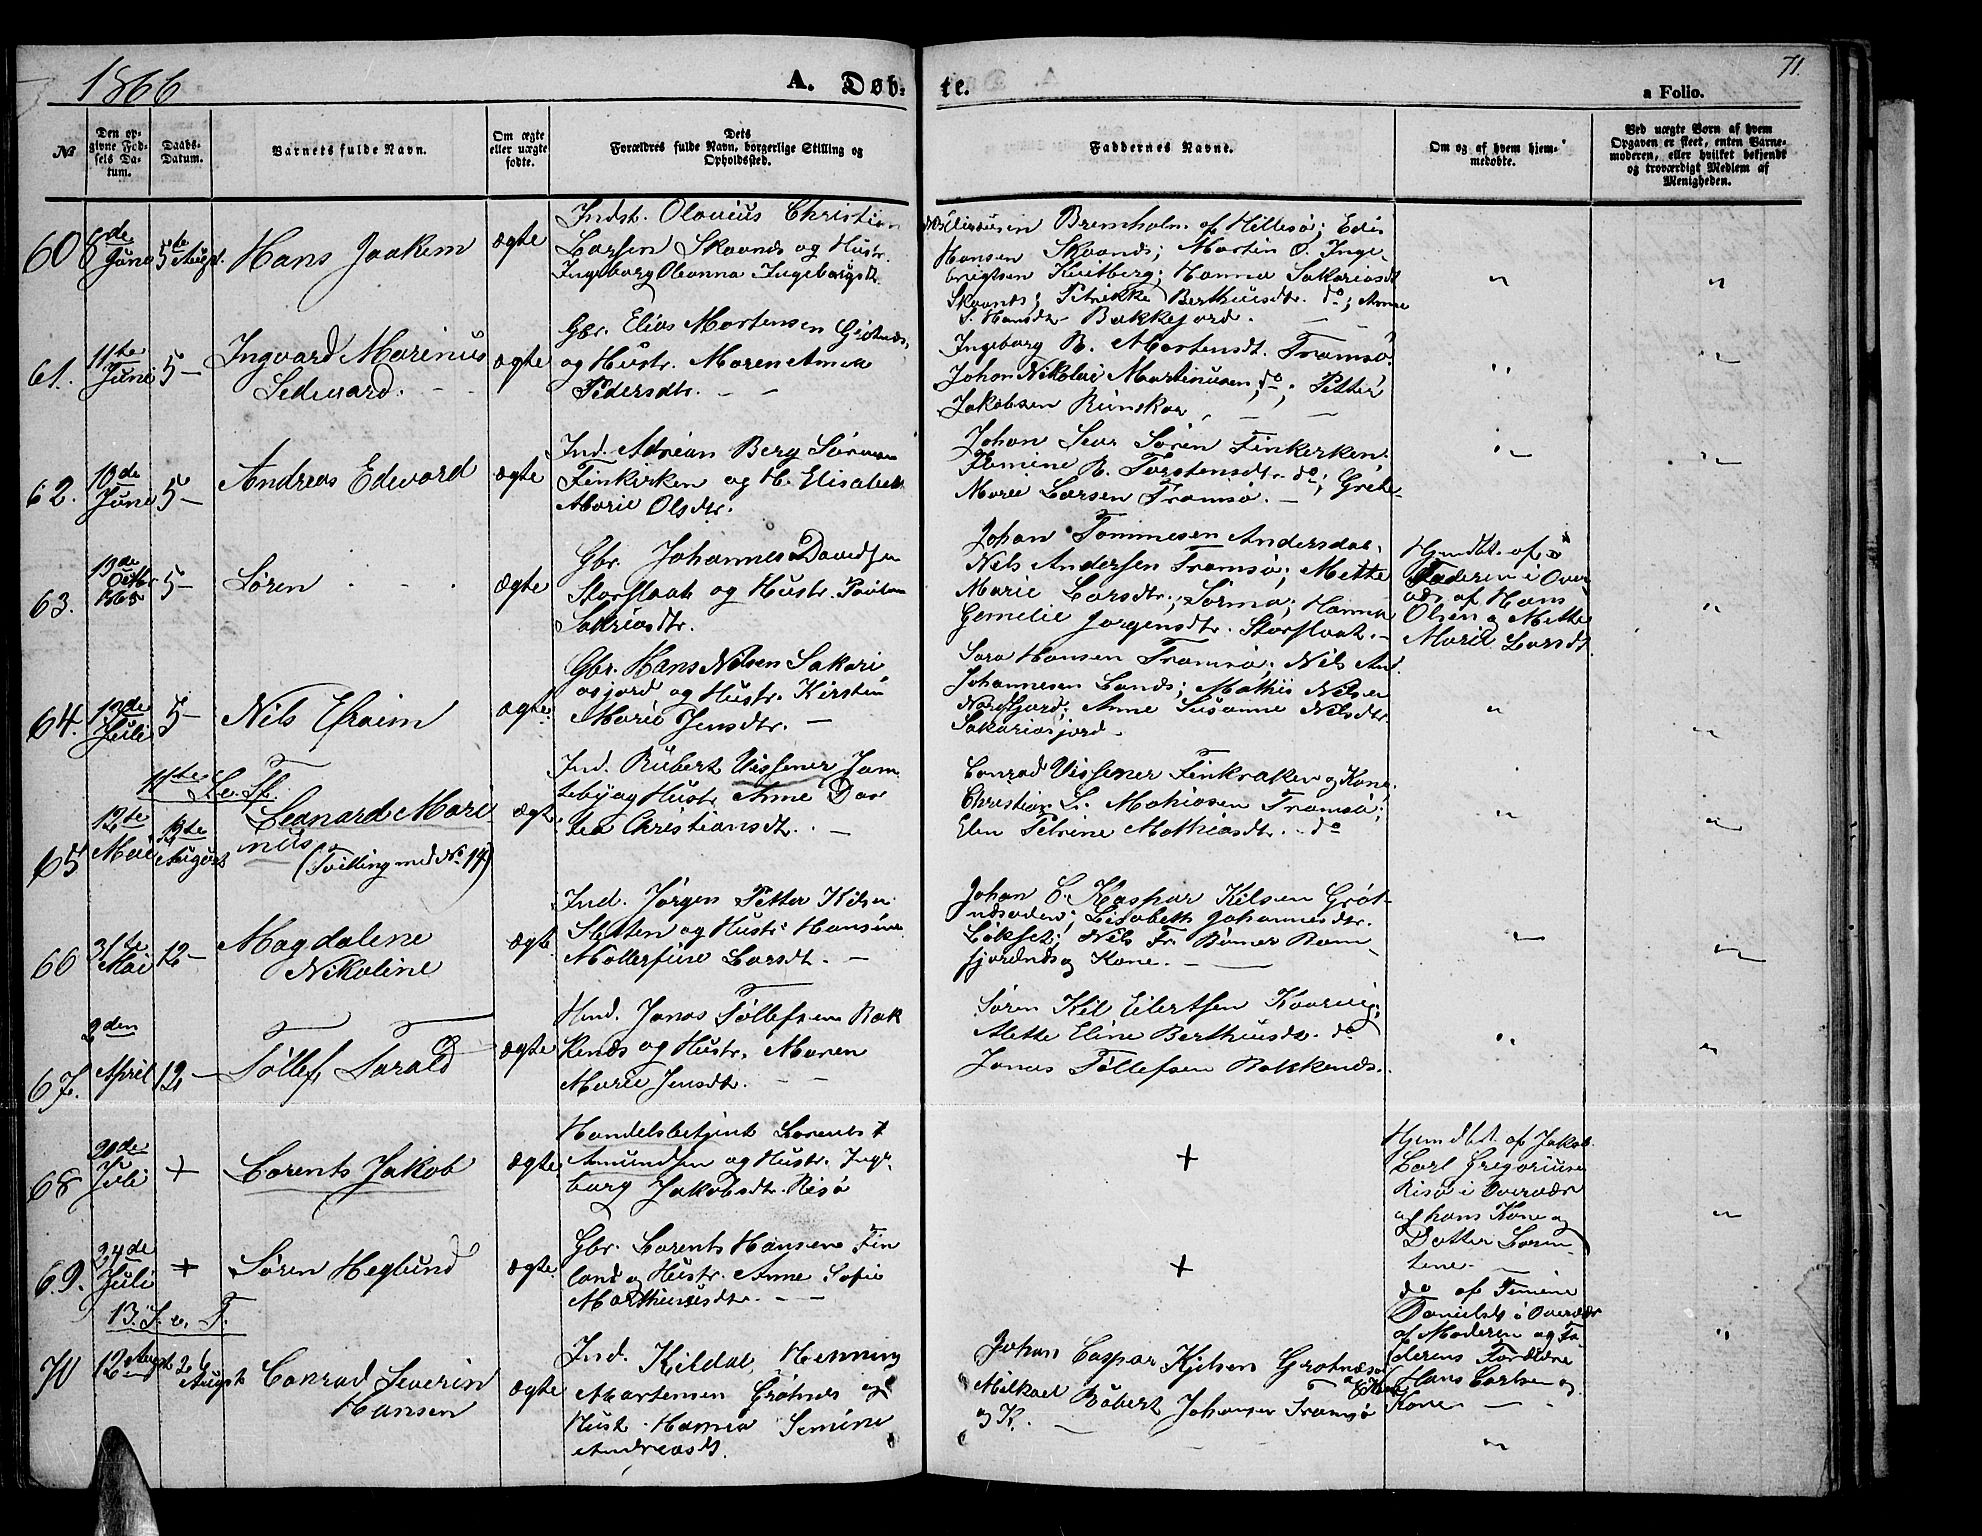 1866
A. Døb-
te.
71.
a Folio.
№
Den op-
givne Fød-
sels Da-
tum.
Daabs-
Datum.
Barnets fulde Navn.
Om ægte
eller uægte
fødte.
Dets
Forældres fulde Navn, borgerlige Stilling og
Opholdssted.
Faddernes Navne.
Om og af hvem hjem-
medøbte.
Ved uægte Børn af hvem
Opgaven er skeet, enten Barne-
moderen, eller hvilket bekjendt
og troværdigt Medlem af
Menigheden.
60 8de Juni 5te Augst. Hans Joakim ægte
Indst. Olavius Christian
Larsen Skaonds og Hustr.
Ingeborg Oleanna Ingeborgsdtr.
Bremholm af Hillesø; Edis
Hansen Skaonds; Martin O. Inge-
brigtsen Kvitberg; Hanna Sakariasdt
Skaonds; Petrikke Bertheusdtr. do; Anne
S. Hansdtr Bakkejord.
61. 11te Juni 5 – Ingvard Marinus
Sedevard. ægte
Gbr. Elias Mortensen Grötnæs,
og Hustr. Maren Anna
Pedersdtr. –
Ingeborg B. Mortensdt. Tromsø.
Johan Nikolai Martinusen, do; Petter
Jakobsen Runskar,
62. 10de Juni 5 – Andreas Edvard ægte
Ind. Adrian Berg Sörensen
Finkirken og H. Elisabeth
Marie Olsdtr.
Johan Sear Sören Finkerken.
Femine B. Torstensdtr. do; Grete
Marie Larsen Tromsø. –
63. 13de Octbr 1865 5 – Søren ægte
Gbr. Johannes Davidsen
Storslaat og Hustr. Pauline
Sakriasdtr.
Johan Tommesen Andersdal.
Nils Andersen Tromsø; Mette
Marie Larsdtr., Sørmo; Hanna
Gemelie Jørgensdtr. Storslaat. –
Hjemdbt. af
Faderen i Over-
vær af Hans
Olsen og Mette
Marie Larsdt.
64. 10de Juli 5 – Nils Efraim ægte.
Gbr. Hans Nilsen Sakari
asjord og Hustr. Kirstin
Marie Jensdtr. –
Sara Hansen Tromsø; Nils And.
Johannesen Lands; Mathis Nilsen
Nordfjord; Anne Susanne Nilsdtr.
Sakariasjord.
11te S. e. Tr.
65 12te Mai 12te August Leonard Mari
nus
(Tvilling med No. 17) ægte
Ind. Rubert Vissener Jom
teby og Hustr. Anne Dor
tea Christiansdt. . –
Conrad Vissener Finkraken og Kone.
Christian L. Mathiasen Tromsø;
Elen Petrine Mathiasdtr. – do
66 31te Mai 12 – Magdalene
Nikoline ægte
Ind. Jørgen Petter Kilsen
Sletten og Hustr: Hansine
Mollerfine Larsdt. –
Johan C. Kaspar Kilsen Gröt-
næsoden; Lisabeth Johannesdtr.
Løkset; Nils Fr. Rømer Ram-
fjordnæs og Kone. –
67. 2den April 12 – Tøllef Torald ægte
Ind. Jonas Tøllefsen Bak
kends og Hustr. Maren
Marie Jensdtr. – –
Søren Kil Eilertsen Kaarvig;
Mette Eline Berthiusdtr. do
Jonas Tøllefsen Bakkends.
68 20de Juli + Lorents Jakob ægte
Handelsbetjent Lorents
Amundsen og Hustr. Inge-
borg Jakobsdtr. Risø
+
Hjemdbt. af Jakob
Carl Gregoriusen
Risø i Overvær
af hans Kone og
Datter Loren-
tine. –
69. 24de Juli + Søren Heglund ægte.
Gbr. Lorents Hansen Fin
land og Hustr. Anne Sofie
Marthinusdtr. – –
+
do af Femine
Danielsd. i Overvær
af Moderen og Fa
derens Forældre
Hans Carlsen og
Kone –
13. S. e. T.
70 12 Augst 26 Augst Conrad Severin
Hansen ægte
Ind. Kildal, Henning
Martensen Grötnes og
Hust. Hanna Semine
Andreasdt.
Johan Caspar Kjilsen Grotnæsod
Mikael Robert Johansen Tromsø
og K. –